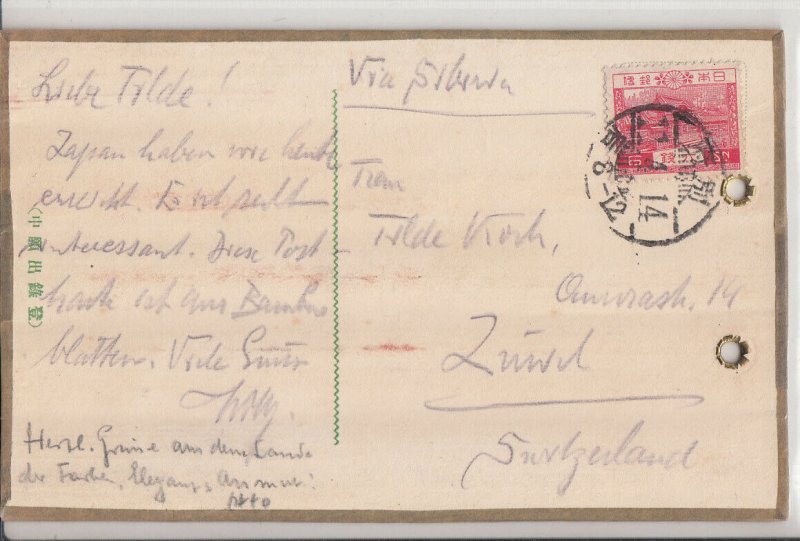 Liebe Tilde!
Japan haben wir heute
erreicht. Es ist sehr
interessant. Diese Post-
karte ist aus Bambus
blättern. Viele Grüsse
Herzl. Grüsse aus dem Lande
der Farben, Eleganz & Anmut!
Otto
Via Siberia
Frau
Tilde Koch,
14
Zürich
Switzerland
(中國出錢登)
日本郵便
14